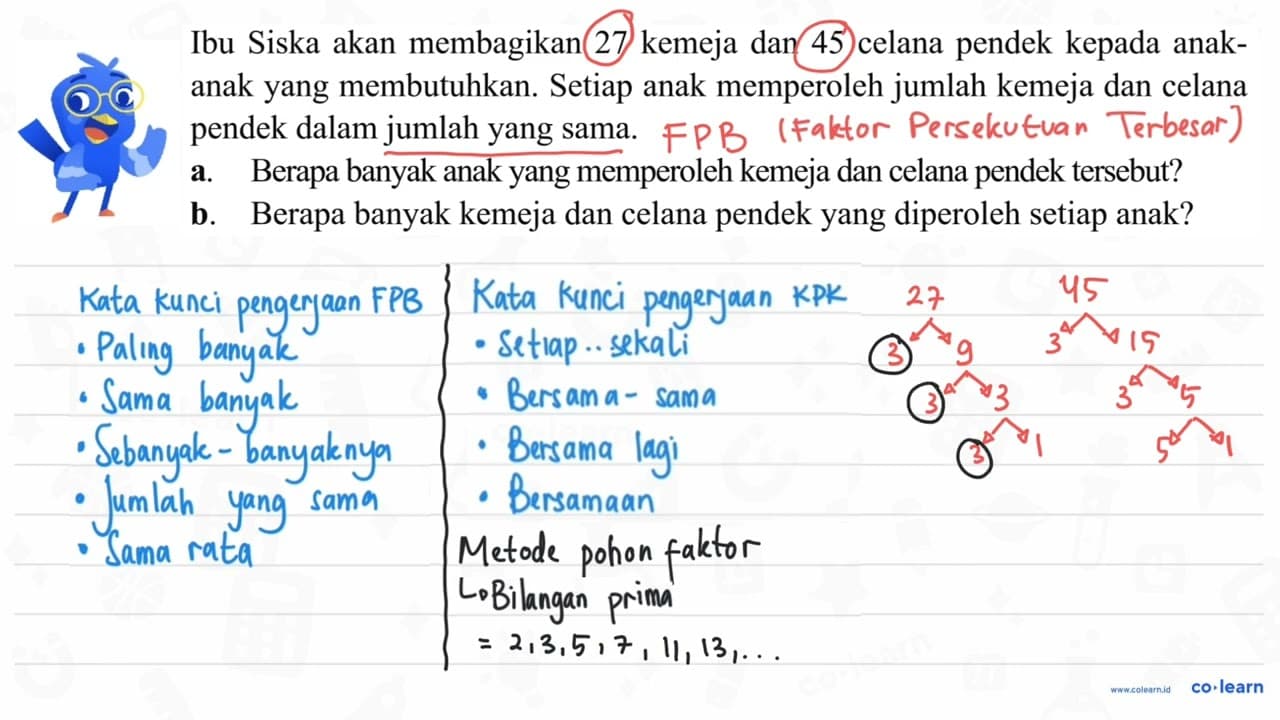 Ibu Siska akan membagikan 27 kemeja dan 45 celana pendek kepada anak-
anak yang membutuhkan. Setiap anak memperoleh jumlah kemeja dan celana
pendek dalam jumlah yang sama. FPB (Faktor Persekutuan Terbesar)
a. Berapa banyak anak yang memperoleh kemeja dan celana pendek tersebut?
b. Berapa banyak kemeja dan celana pendek yang diperoleh setiap anak?
Kata kunci pengerjaan FPB
• Paling banyak
• Sama banyak
• Sebanyak-banyaknya
• Jumlah yang sama
• Sama rata
Kata kunci pengerjaan KPK
• Setiap .. sekali
• Bersama - sama
• Bersama lagi
• Bersamaan
Metode pohon faktor
↳ Bilangan prima
= 2, 3, 5, 7, 11, 13, ...
27
3 9
3 3
3 1
45
3 15
3 5
5 1
www.colearn.id co·learn